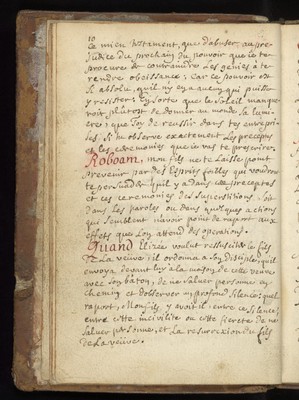 10
ce mien Testament, que d'abuser au pre-
judice du prochain du pouvoir que je te
procure de contraindre les genies a te
rendre obeissance; Car ce pouvoir est
si absolu, qu'il n'y en a aucun qui puisse
y resister; En sorte que le Soleil manque-
roit plustot de donner au monde sa lumi-
ere, que toy de reussir dans tes entrepri-
ses, si tu observe exactement les preceptes
et les ceremonies que je vay te prescrire.
Roboam, mon fils ne te laisse point
prevenir par des Esprits foibles qui voudront
te persuader qu'il y a dans ces preceptes
et ces ceremonies des superstitions, soit
dans les paroles ou dans quelques actions
qui semblent n'avoir point de raport aux
effets que l'on attend des operations.
Quand Elizée voulut ressusciter le fils
de La veuve il ordonna a son Disciple, qu'il
envoya devant luy a la maison de cette veuve
avec son baton, de ne saluer personne en
chemin et d'observer un profond silence: quel
raport, Mon fils, y avoit il entre ce silence,
entre cette incivilité ou cette fierté de ne
saluer personne, et La resurrexion du fils
de La veuve.